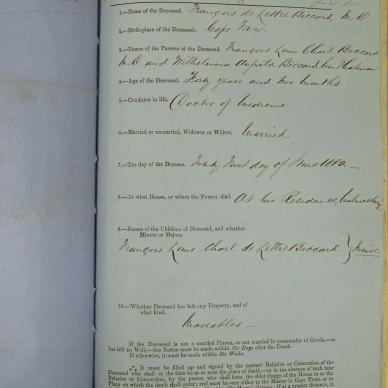 1.—Name of the Deceased. François de Lettre Biccard, M.D.
2.—Birth-place of the Deceased. Cape Town.
3.—Names of the Parents of the Deceased. François Louis Charl Biccard
M.D. and Wilhelmina Biccard
4.—Age of the Deceased. Forty years and two months
5.—Condition in life. (Doctor of Medicine
6.—Married or unmarried, Widower or Widow. Married
7.—The day of the Decease. Twenty first day of June 1880.—
8.—At what House, or where the Person died. At his Residence, Malmesbury
9.—Names of the Children of Deceased, and whether
Minors or Majors.
François Louis Charl de Lettre Biccard } Minor.
10.—Whether Deceased has left any Property, and of
what kind.
Moveables —
If the Deceased is not a married Person, or not married in community of Goods,—or
has left no Will,—this Notice must be made within Six Days after the Death.
If otherwise, it must be made within Six Weeks.
It must be filled up and signed by the nearest Relative or Connexion of the
Deceased who shall at the time be at or near the place of death,—or in the absence of such near
Relative or Connexion, by the person who shall have the chief charge of the House in or the
Place on which the death shall occur; and must be sent either to the Master in Cape Town or to